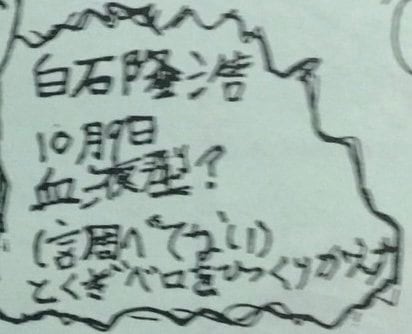 白石隆浩
10月9日
血液型?
(調べてない)
とくぎベロをひっくりかえす